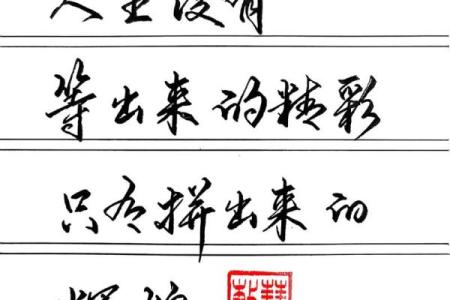 人生没有
等出来的精彩
只有拼出来的